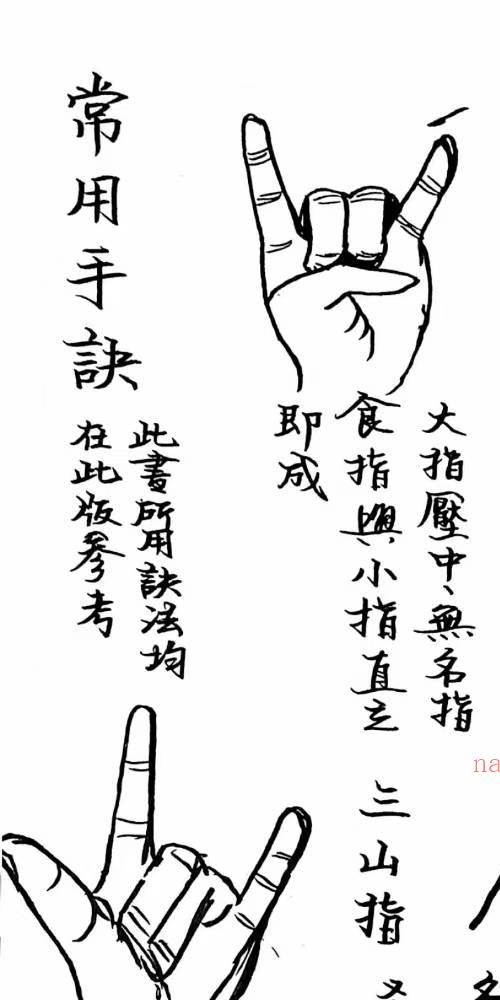 常用手訣
此書所用訣法均
在此版參考
大指壓中、無名指
食指與小指直立
即成
三山指
na